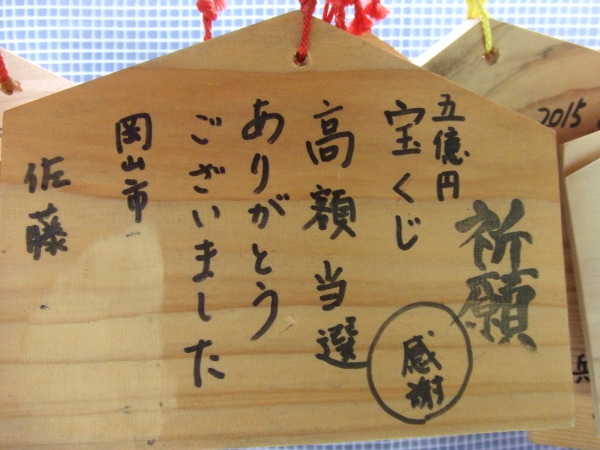 祈願
五億円
宝くじ
高額当選
ありがとう
ございました
岡山市
佐藤
感謝
2015
兵